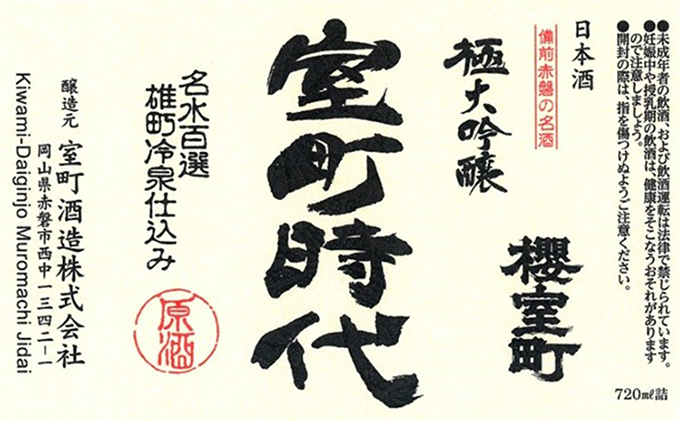 ●未成年者の飲酒、および飲酒運転は法律で禁じられています。
●妊娠中や授乳期の飲酒は、健康をそこなうおそれがあります
ので注意しましょう。
●開封の際は、指を傷つけぬようご注意ください。
720㎖詰
日本酒
備前赤磐の名酒
櫻室町
極大吟醸
室町時代
名水百選
雄町冷泉仕込み
原酒
醸造元 室町酒造株式会社
岡山県赤磐市西中一三四二−一
Kiwami-Daiginjo Muromachi Jidai